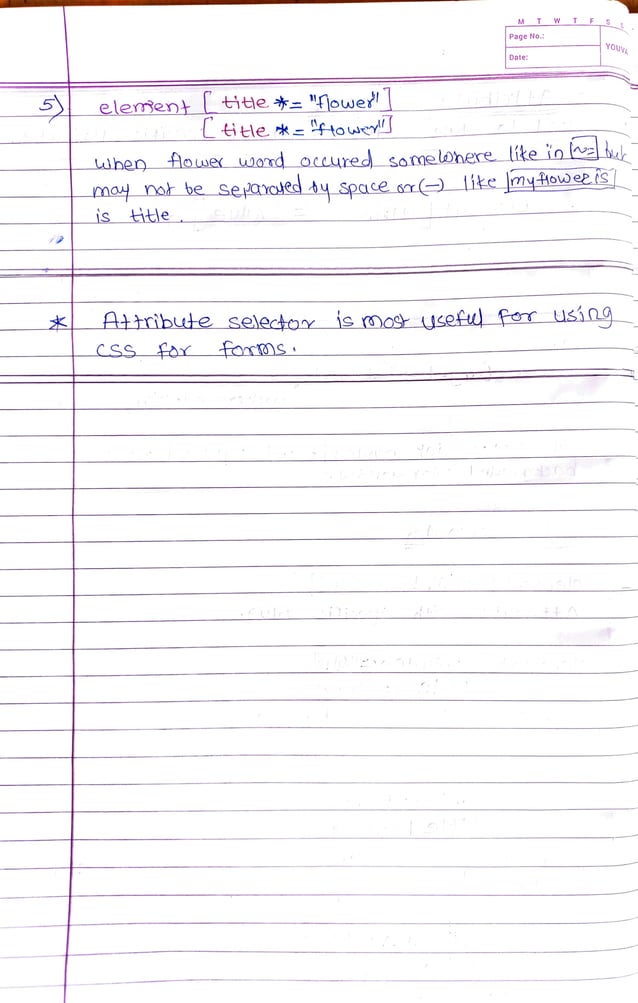 M T W T F S S
Page No.:
Date:
YOUVA
5) element [ title *= "flower" ]
[ title *= "flower" ]
when flower word occured somewhere like in ~= but
may not be separated by space or (-) like myflower is
is title.
* Attribute selector is most useful for using
CSS for forms.